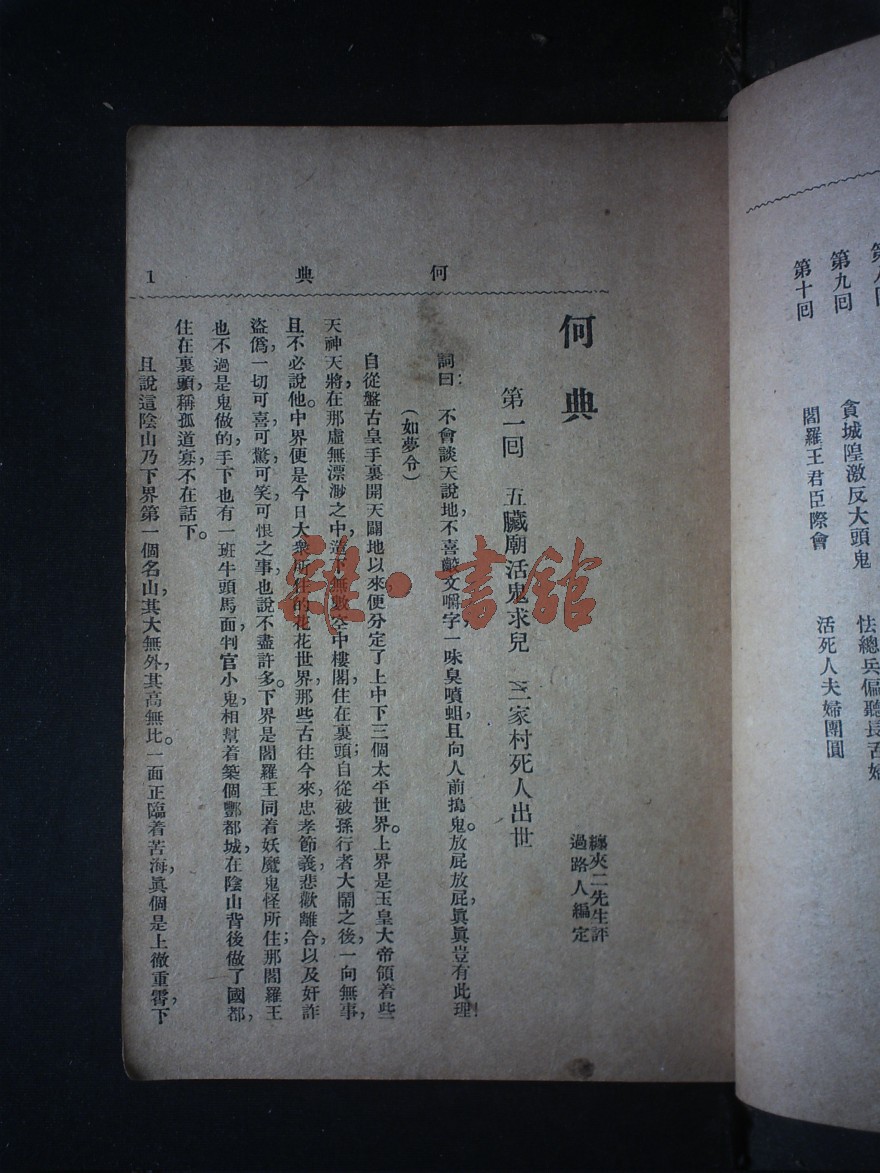 第八回
第九回 貪城隍激反大頭鬼 怯總兵偏聽長舌婦
第十回 閻羅王君臣際會 活死人夫婦團圓
何 典 1
何典
纏夾二先生評
過路人編定
第一回 五臟廟活鬼求兒 三家村死人出世
詞曰: 不會談天說地,不喜齩文嚼字,一味臭噴蛆,且向人前搗鬼。放屁放屁,眞眞豈有此理!
(如夢令)
自從盤古皇手裏開天闢地以來,便分定了上中下三個太平世界。上界是玉皇大帝領着些
天神天將,在那虛無漂渺之中,造下無數空中樓閣,住在裏頭;自從被孫行者大鬧之後,一向無事,
且不必說他。中界便是今日大衆所住的花花世界,那些古往今來,忠孝節義,悲歡離合,以及奸詐
盜僞,一切可喜,可驚,可笑,可恨之事,也說不盡許多。下界是閻羅王同着妖魔鬼怪所住;那閻羅王
也不過是鬼做的,手下也有一班牛頭馬面,判官小鬼,相幫着築個酆都城,在陰山背後做了國都,
住在裏頭,稱孤道寡,不在話下。
且說這陰山乃下界第一個名山,其大無外,其高無比。一面正臨着苦海,眞個是上徹重霄,下
雜·書館